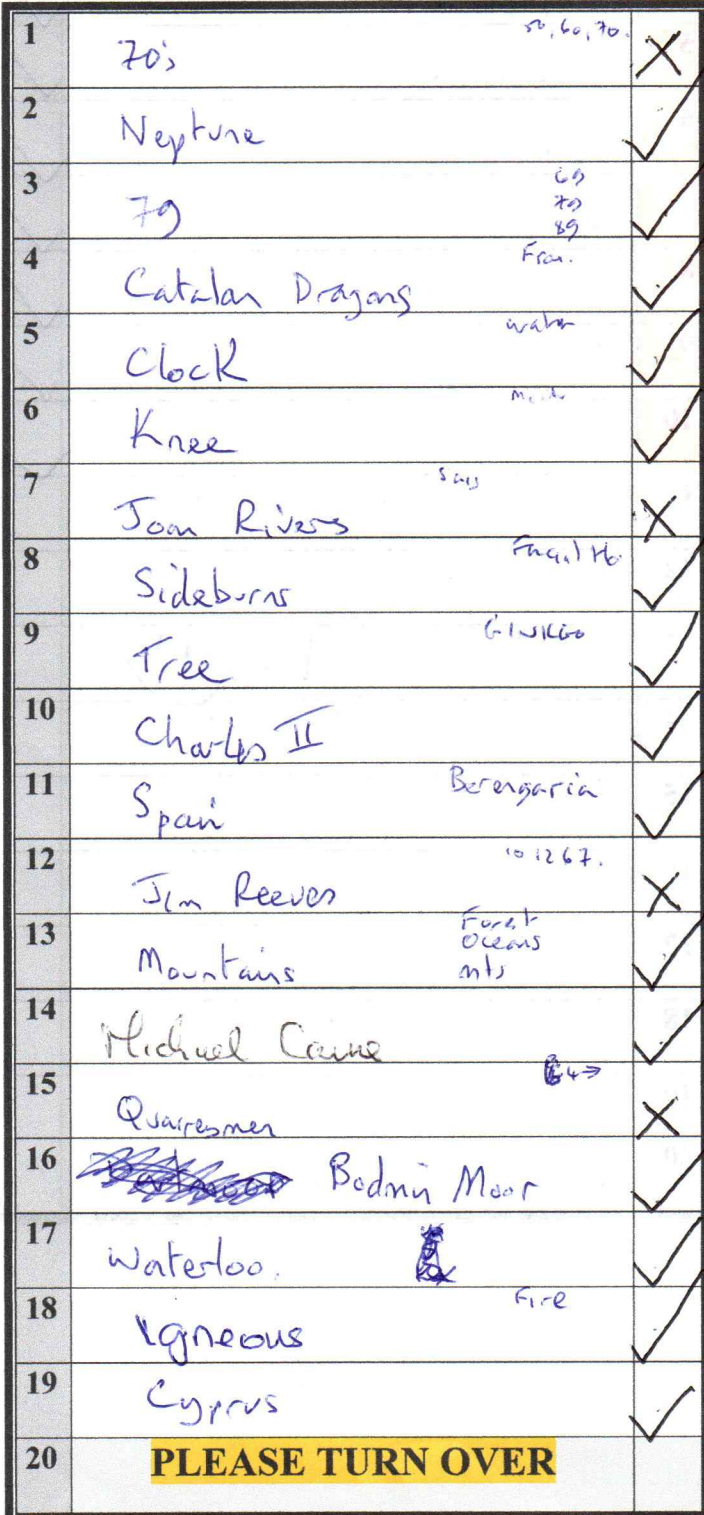 1 70's 50, 60, 70.
2 Neptune
3 79 69
79
89
4 Catalan Dragons Fran.
5 Clock water
6 Knee
7 Joan Rivers says
8 Sideburns Facial
9 Tree GINKGO
10 Charles II
11 Spain Berengaria
12 Jim Reeves 101267.
13 Mountains Forest
Oceans
mts
14 Michael Caine
15
16 Bodmin Moor
17 Waterloo.
18 Igneous Fire
19 Cyprus
20 PLEASE TURN OVER